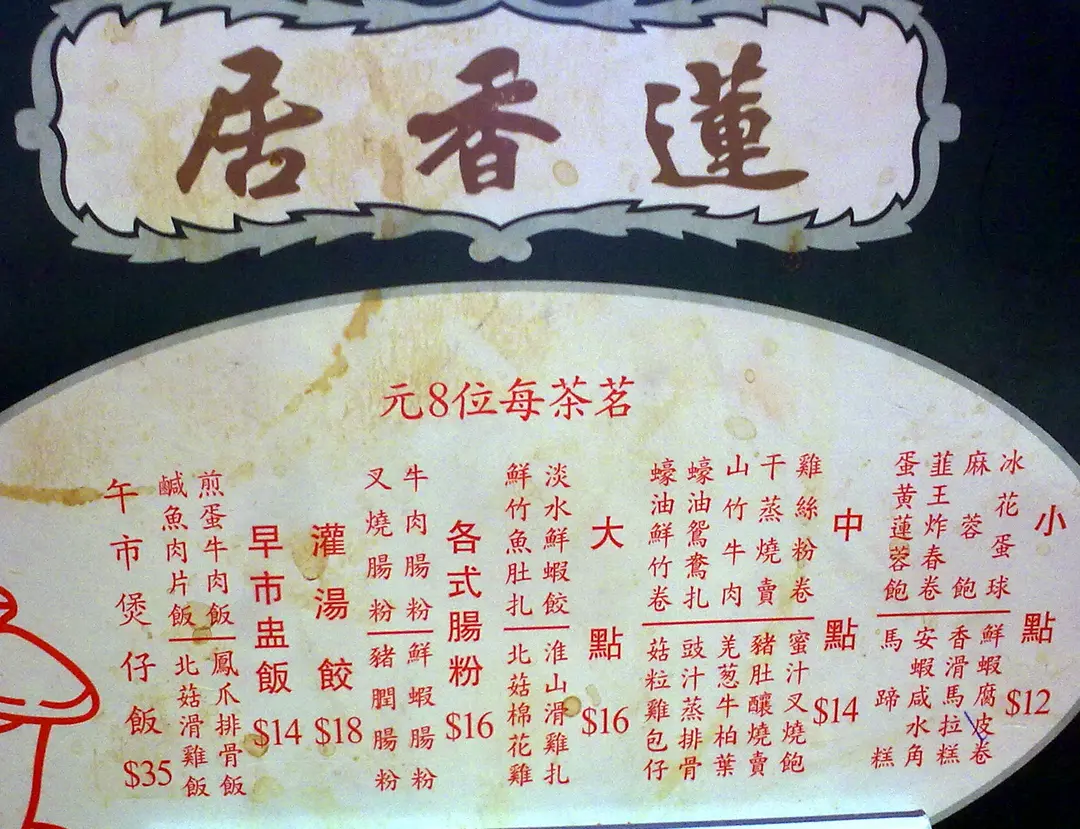 蓮香居
茗茶每位8元
小點 $12
冰花蛋球
麻蓉飽
韮王炸春卷
蛋黃蓮蓉飽
鮮蝦腐皮卷
香滑馬拉糕
安蝦咸水角
馬蹄糕
中點 $14
雞絲粉卷
干蒸燒賣
山竹牛肉
蠔油鴛鴦扎
蠔油鮮竹卷
蜜汁叉燒飽
豬肚釀燒賣
羌葱牛柏葉
豉汁蒸排骨
菇粒雞包仔
大點 $16
淡水鮮蝦餃
鮮竹魚肚扎
淮山滑雞扎
北菇棉花雞
各式腸粉 $16
牛肉腸粉
叉燒腸粉
鮮蝦腸粉
豬膶腸粉
灌湯餃 $18
早市盅飯 $14
煎蛋牛肉飯
鹹魚肉片飯
鳳爪排骨飯
北菇滑雞飯
午市煲仔飯 $35